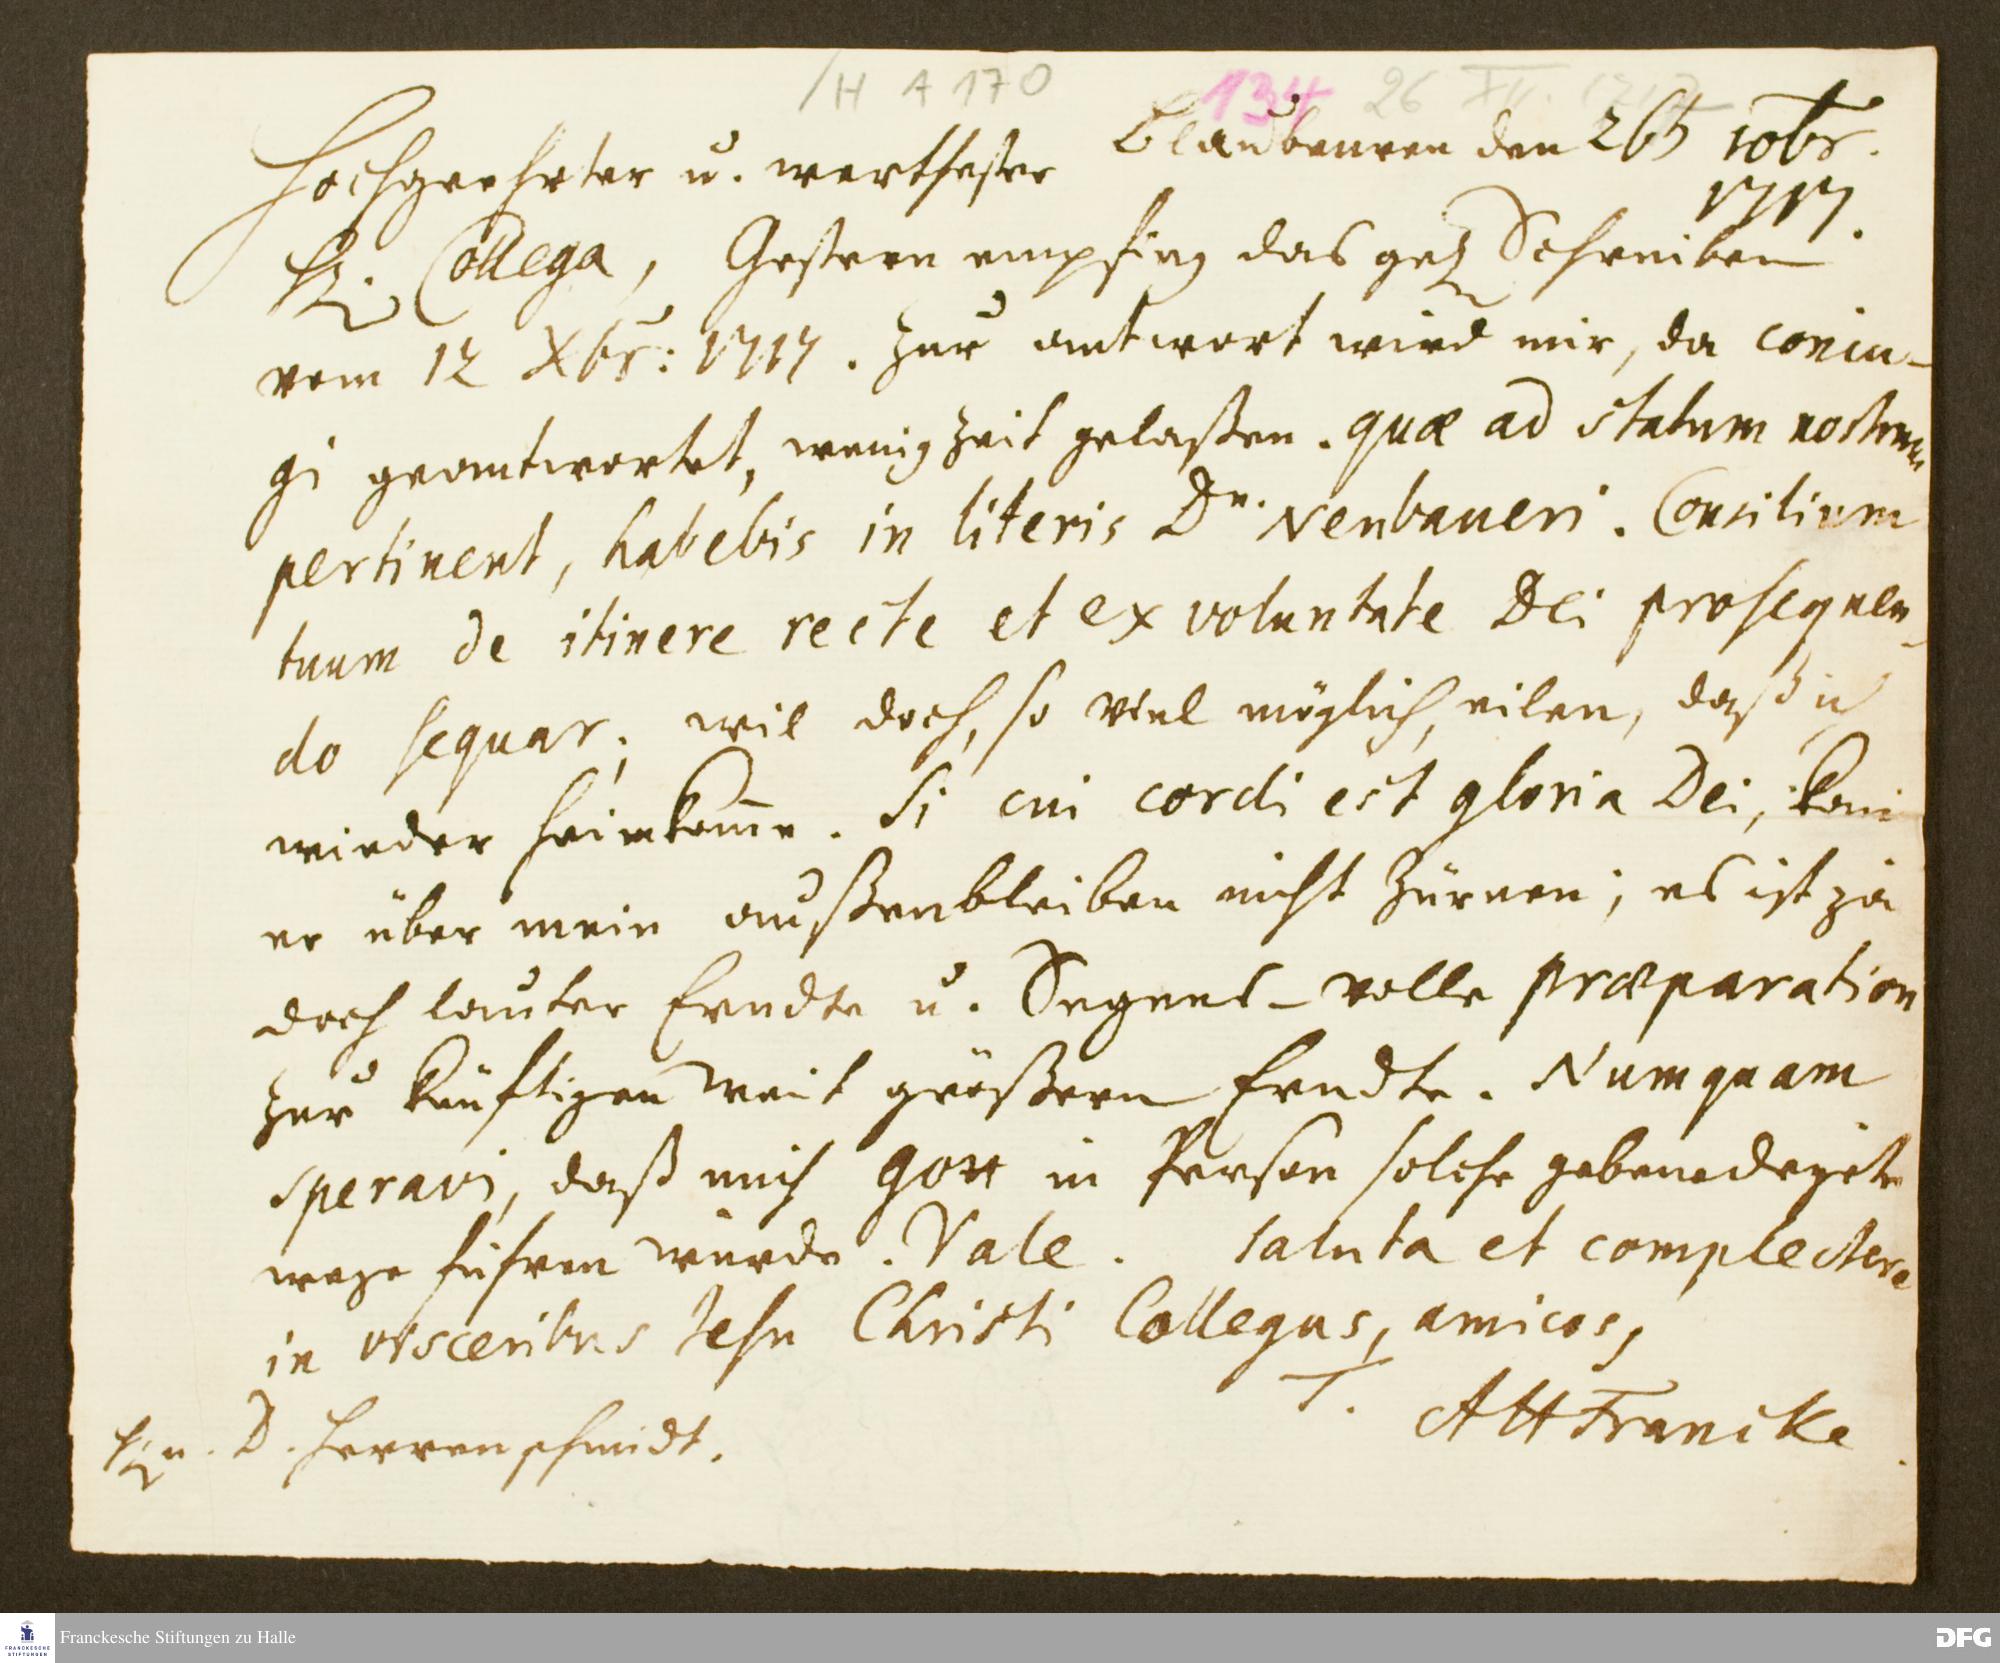 /H A 170
134 26 XII. 1717
Blaubeuren den 26t 10br.
1717.
Hochgeehrter u. werthester
H. Collega, Gestern empfing das gel. Schreiben
vom 12 Xbr: 1717. Zur antwort wird mir, da coniu-
gi geantwortet, wenig Zeit gelaßen. quæ ad statum nostrum
pertinent, habebis in literis Dn. Neubaueri. Consilium
tuum de itinere recte et ex voluntate Dei prosequen-
do sequar; wil doch, so viel möglich, eilen, daß ich
wieder heimkom̄e. Si cui cordi est gloria Dei, kan
er über mein außenbleiben nicht zürnen; es ist ja
doch lauter Erndte u. Segens-volle præparation
zur künftigen weit größern Erndte. Numquam
speravi, daß mich Gott in Person solche gebenedeyete
wege führen würde. Vale. Saluta et complectere
in visceribus Jesu Christi Collegas, amicos,
T. AHFrancke
Hn. D. Herrenschmidt.
Franckesche Stiftungen zu Halle
FRANCKESCHE STIFTUNGEN
DFG